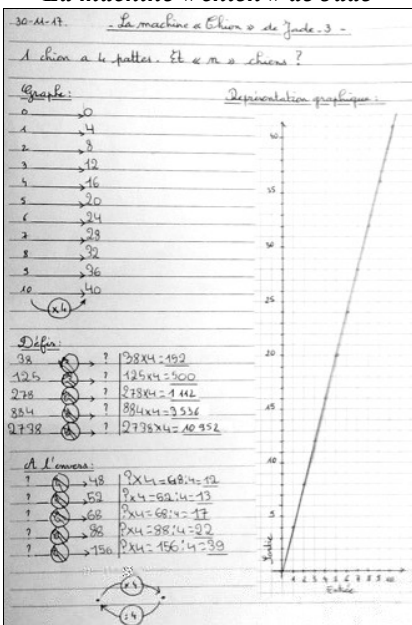 La machine « Chien » de Jade
30-11-17. - La machine « Chien » de Jade - 3 -
1 chien a 4 pattes. Et « n » chiens ?
Graphe :
0 → 0
1 → 4
2 → 8
3 → 12
4 → 16
5 → 20
6 → 24
7 → 28
8 → 32
9 → 36
10 → 40
×4
Défis :
38 → ? 38×4=152
125 → ? 125×4=500
278 → ? 278×4=1 112
884 → ? 884×4=3 536
2738 → ? 2738×4=10 952
A l'envers :
? → 48 ?×4=48:4=12
? → 52 ?×4=52:4=13
? → 68 ?×4=68:4=17
? → 88 ?×4=88:4=22
? → 156 ?×4=156:4=39
×4
:4
Représentation graphique :
40
35
30
25
20
15
10
5
Sortie
1 2 3 4 5 6 7 8 9 10
Entrée